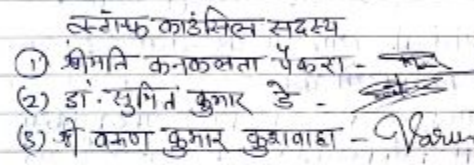 स्टॉफ काउंसिल सदस्य
(1) श्रीमति कनकलता पैकरा -
(2) डॉ. सुमित कुमार डे -
(3) श्री वरुण कुमार कुशवाहा - Varu